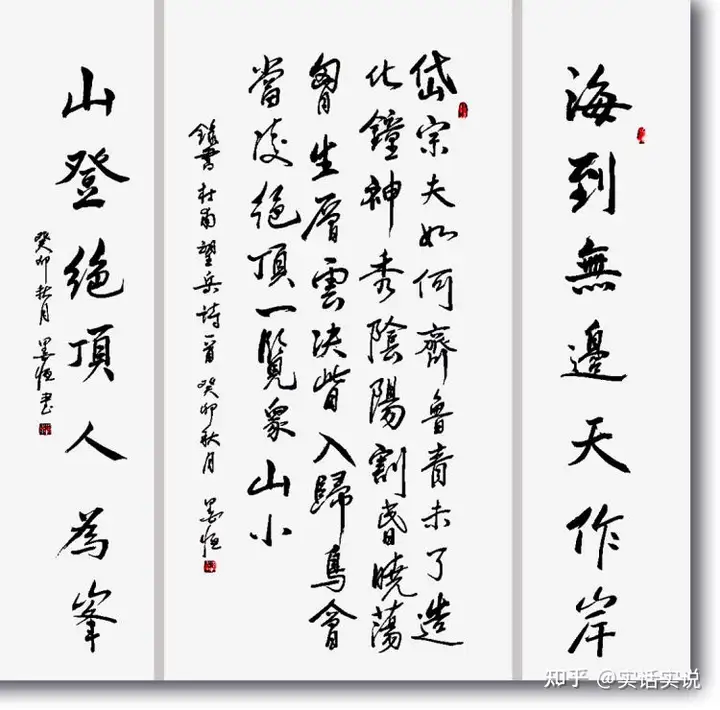 海到無邊天作岸
岱宗夫如何齊魯青未了造
化鐘神秀陰陽割昬曉蕩
胷生層雲决眥入歸鳥會
當凌絕頂一覽衆山小
書杜甫望岳詩一首 癸卯秋月 墨恒
山登絕頂人為峯
癸卯秋月 墨恒書
知乎 @实话实说